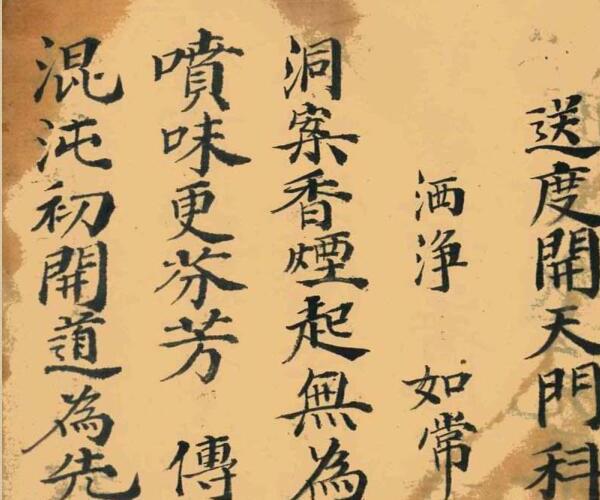 送度開天門科
洒净 如常
洞案香煙起無為
噴味更芬芳 傳
混沌初開道為先